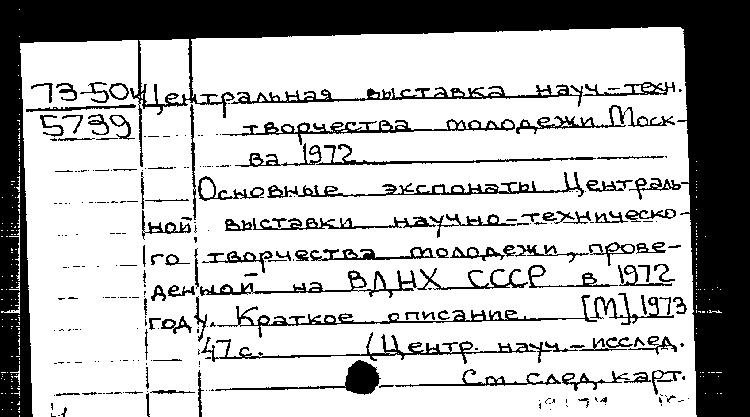 73-50 Центральная выставка науч.-техн.
5739 творчества молодежи. Моск-
ва. 1972.
Основные экспонаты Централь-
ной выставки научно-техническо-
го творчества молодежи, прове-
денной на ВДНХ СССР в 1972
году. Краткое описание. [М], 1973
47 с. (Центр. науч.-исслед.
См. след. карт.